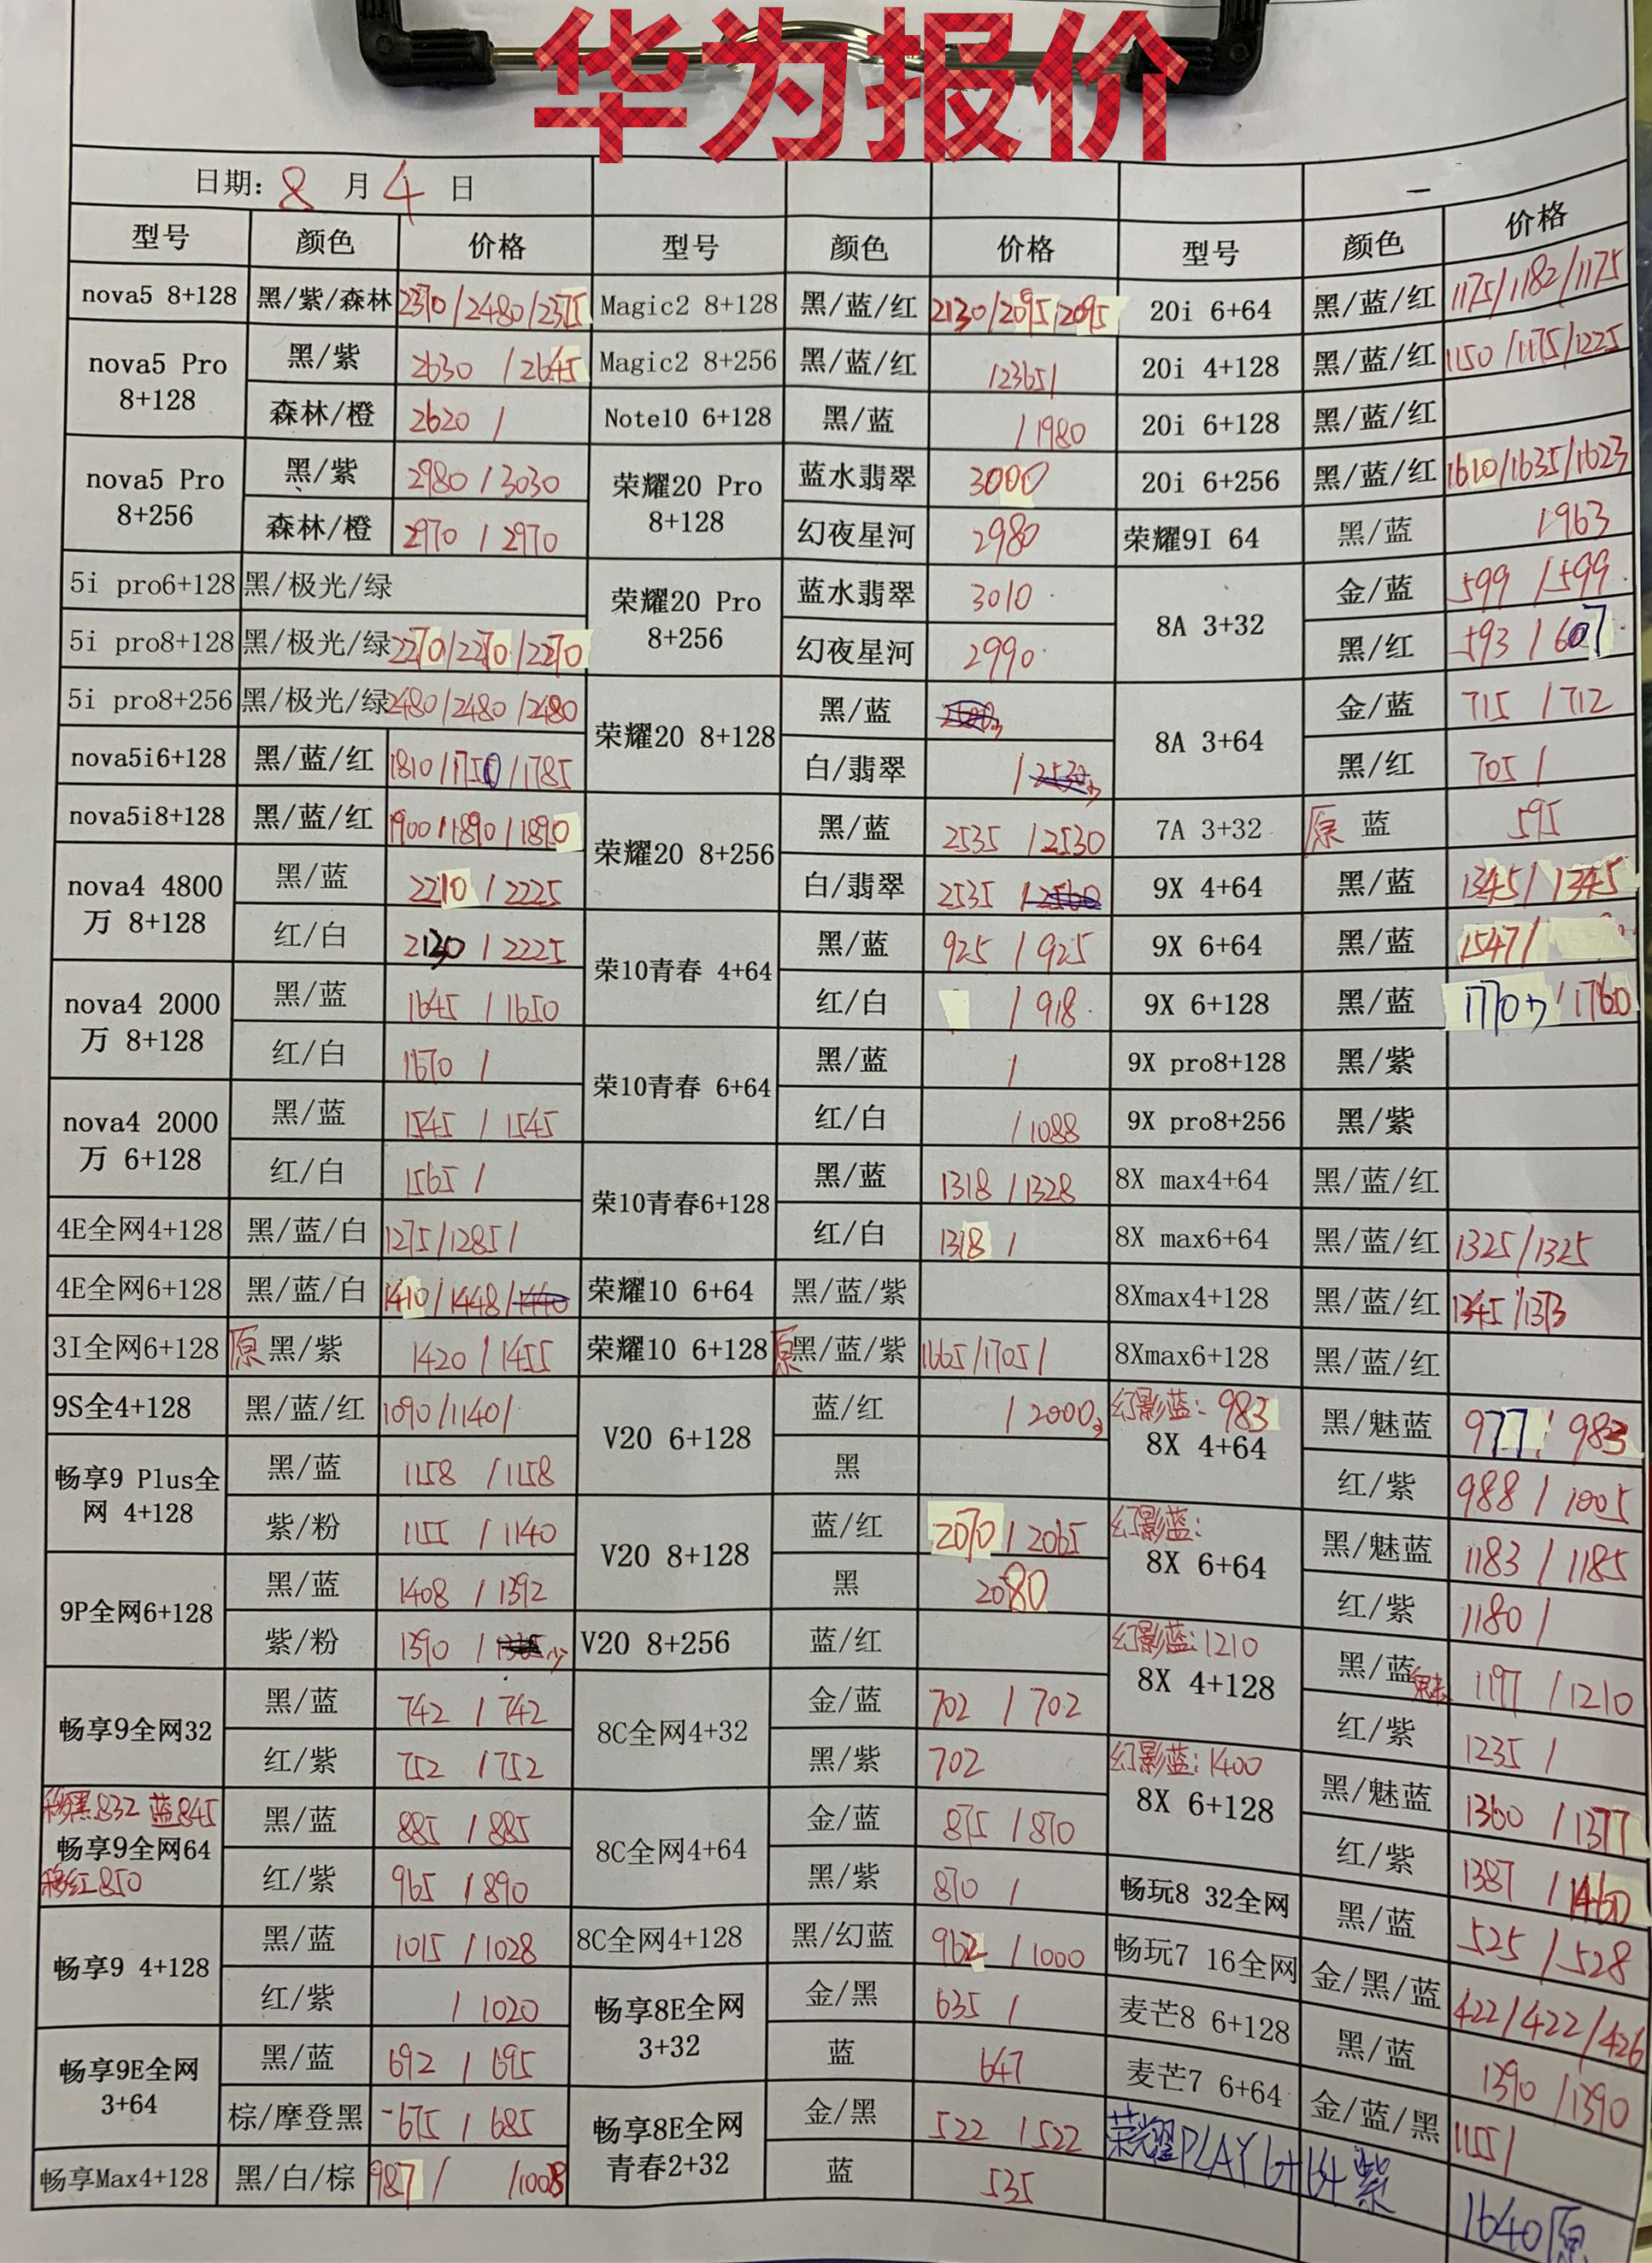 华为报价
日期: 8 月 4 日
型号 颜色 价格 型号 颜色 价格 型号 颜色 价格
nova5 8+128 黑/紫/森林 2370/2480/2375 Magic2 8+128 黑/蓝/红 2130/2095/2095 20i 6+64 黑/蓝/红 1175/1182/1175
nova5 Pro 8+128 黑/紫 2630 /2645 Magic2 8+256 黑/蓝/红 /2365/ 20i 4+128 黑/蓝/红 1150/1175/1225
森林/橙 2620 / Note10 6+128 黑/蓝 /1980 20i 6+128 黑/蓝/红
nova5 Pro 8+256 黑/紫 2980/3030 荣耀20 Pro 8+128 蓝水翡翠 3000 20i 6+256 黑/蓝/红 1610/1635/1623
森林/橙 2970/2970 幻夜星河 2980 荣耀9I 64 黑/蓝 /963
5i pro6+128 黑/极光/绿 荣耀20 Pro 8+256 蓝水翡翠 3010 8A 3+32 金/蓝 599 /599
5i pro8+128 黑/极光/绿 2270/2270/2270 幻夜星河 2990 黑/红 593/607
5i pro8+256 黑/极光/绿 2480/2480/2480 荣耀20 8+128 黑/蓝 8A 3+64 金/蓝 715 /712
nova5i6+128 黑/蓝/红 1810/1750/1785 白/翡翠 / 黑/红 705/
nova5i8+128 黑/蓝/红 1900/1890/1890 荣耀20 8+256 黑/蓝 2535 /2530 7A 3+32 原 蓝 595
nova4 4800万 8+128 黑/蓝 2210 / 2225 白/翡翠 2535 / 9X 4+64 黑/蓝 1345/1345
红/白 2130 / 2225 荣10青春 4+64 黑/蓝 925 / 925 9X 6+64 黑/蓝 1547/
nova4 2000万 8+128 黑/蓝 1645 / 1650 红/白 / 918 9X 6+128 黑/蓝 1770少/1760
红/白 1670 / 荣10青春 6+64 黑/蓝 / 9X pro8+128 黑/紫
nova4 2000万 6+128 黑/蓝 1545 / 1545 红/白 /1088 9X pro8+256 黑/紫
红/白 1565 / 荣10青春6+128 黑/蓝 1318 /1328 8X max4+64 黑/蓝/红
4E全网4+128 黑/蓝/白 1275/1285/ 红/白 1318 / 8X max6+64 黑/蓝/红 1325/1325
4E全网6+128 黑/蓝/白 1410/1448/ 荣耀10 6+64 黑/蓝/紫 8Xmax4+128 黑/蓝/红 1345/1373
3I全网6+128 原 黑/紫 1420 / 1455 荣耀10 6+128 原 黑/蓝/紫 1665/1705/ 8Xmax6+128 黑/蓝/红
9S全4+128 黑/蓝/红 1090/1140/ V20 6+128 蓝/红 /2000少 幻影蓝: 983 8X 4+64 黑/魅蓝 977/983
畅享9 Plus全网 4+128 黑/蓝 1158 /1158 黑 红/紫 988 / 1005
紫/粉 1155 / 1140 V20 8+128 蓝/红 2070/2065 幻影蓝: 8X 6+64 黑/魅蓝 1183 / 1185
9P全网6+128 黑/蓝 1408 / 1392 黑 2080 红/紫 1180/
紫/粉 1390 / 少 V20 8+256 蓝/红 幻影蓝:1210 8X 4+128 黑/蓝魅 1197 /1210
畅享9全网32 黑/蓝 742 / 742 8C全网4+32 金/蓝 702 / 702 红/紫 1235 /
红/紫 752 /752 黑/紫 702 幻影蓝:1400 8X 6+128 黑/魅蓝 1360 /1377
移黑832 蓝845 畅享9全网64 黑/蓝 885 / 885 8C全网4+64 金/蓝 875 / 870 红/紫 1387 /1460
移红850 红/紫 965 / 890 黑/紫 870 / 畅玩8 32全网 黑/蓝 525 / 528
畅享9 4+128 黑/蓝 1015 /1028 8C全网4+128 黑/幻蓝 962 /1000 畅玩7 16全网 金/黑/蓝 422/422/426
红/紫 / 1020 畅享8E全网 3+32 金/黑 635 / 麦芒8 6+128 黑/蓝 1390 /1390
畅享9E全网 3+64 黑/蓝 692 / 695 蓝 647 麦芒7 6+64 金/蓝/黑 1155/
棕/摩登黑 675 / 685 畅享8E全网青春2+32 金/黑 522 /522 荣耀PLAY 6+64 紫 1640原
畅享Max4+128 黑/白/棕 987/ /1008 蓝 535